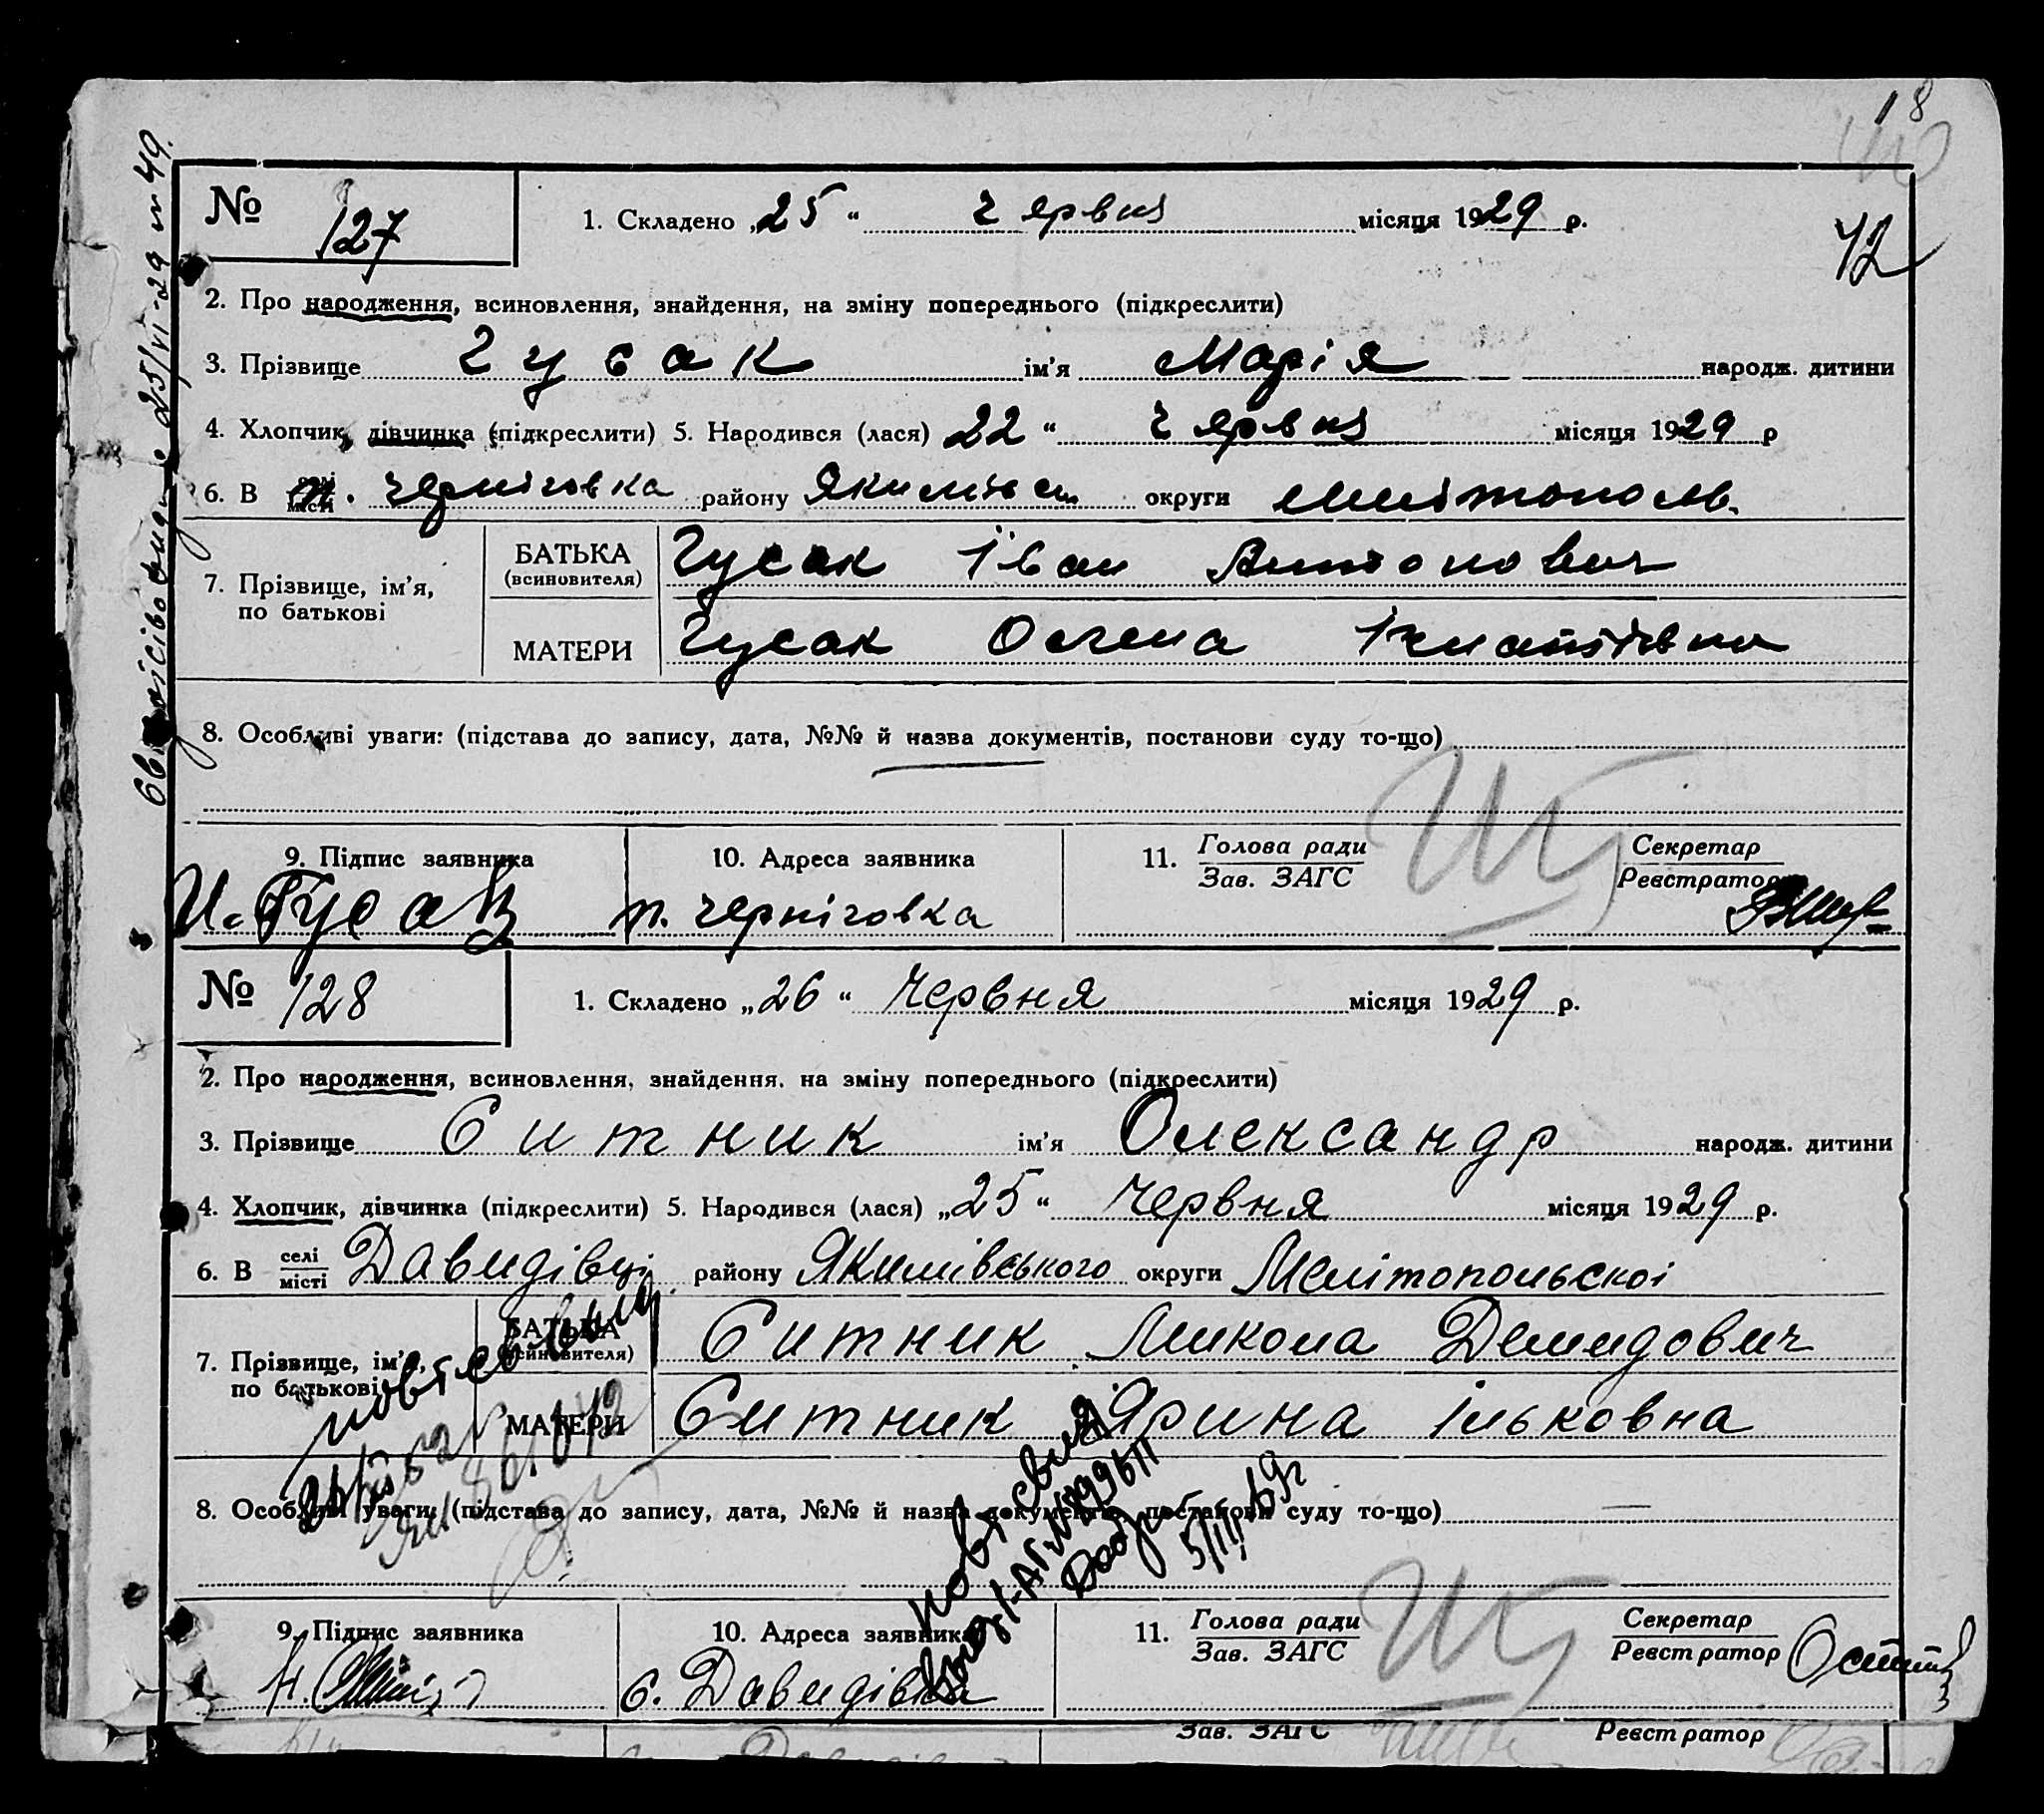 18
42
№ 127
1. Складено „25“ червня місяця 1929 р.
2. Про народження, всиновлення, знайдення, на зміну попереднього (підкреслити)
3. Прізвище Гусак ім'я Марія народж. дитини
4. Хлопчик, дівчинка (підкреслити) 5. Народився (лася) 22“ червня місяця 1929 р
6. В п. Черніговка району Якимівськ округи Мелітополь.
7. Прізвище, ім'я, по батькові
БАТЬКА (всиновителя) Гусак Іван Антонович
МАТЕРИ Гусак Олена
8. Особливі уваги: (підстава до запису, дата, №№ й назва документів, постанови суду то-що)
9. Підпис заявника
10. Адреса заявника
11. Голова ради
Зав. ЗАГС
Секретар
Реєстратор
И. Гусак
п. Черніговка
№ 128
1. Складено „26“ Червня місяця 1929 р.
2. Про народження, всиновлення, знайдення, на зміну попереднього (підкреслити)
3. Прізвище Ситник ім'я Олександр народж. дитини
4. Хлопчик, дівчинка (підкреслити) 5. Народився (лася) „25“ Червня місяця 1929 р.
6. В селі місті Давидівці району Якимівського округи Мелітопольскоі
7. Прізвище, ім'я, по батькові
БАТЬКА (всиновителя) Ситник Микола Демидович
МАТЕРИ Ситник Ярина Ільковна
8. Особливі уваги: (підстава до запису, дата, №№ й назва документів, постанови суду то-що)
5/III 69г
9. Підпис заявника
10. Адреса заявника
11. Голова ради
Зав. ЗАГС
Секретар
Реєстратор
с. Давидівка
Зав. ЗАГС
Реєстратор